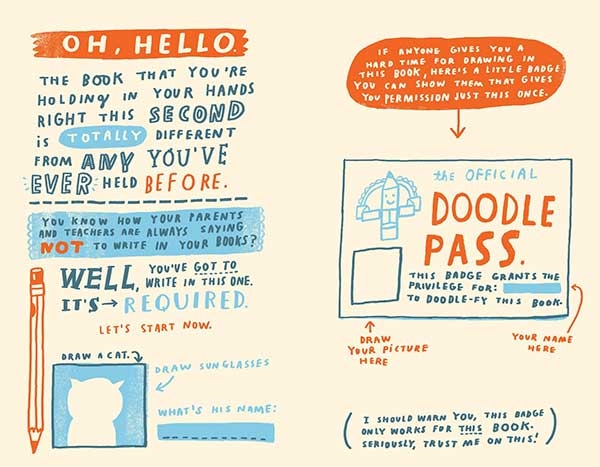 OH, HELLO.
THE BOOK THAT YOU'RE
HOLDING IN YOUR HANDS
RIGHT THIS SECOND
is TOTALLY DIFFERENT
FROM ANY YOU'VE
EVER HELD BEFORE.
YOU KNOW HOW YOUR PARENTS
AND TEACHERS ARE ALWAYS SAYING
NOT TO WRITE IN YOUR BOOKS?
WELL, YOU'VE GOT TO
WRITE IN THIS ONE.
IT'S → REQUIRED.
LET'S START NOW.
DRAW A CAT.
DRAW SUNGLASSES
WHAT'S HIS NAME:
IF ANYONE GIVES YOU A
HARD TIME FOR DRAWING IN
THIS BOOK, HERE'S A LITTLE BADGE
YOU CAN SHOW THEM THAT GIVES
YOU PERMISSION JUST THIS ONCE.
the OFFICIAL
DOODLE
PASS.
THIS BADGE GRANTS THE
PRIVILEGE FOR:
TO DOODLE-FY THIS BOOK.
DRAW
YOUR PICTURE
HERE
YOUR NAME
HERE
( I SHOULD WARN YOU, THIS BADGE
ONLY WORKS FOR THIS BOOK.
SERIOUSLY, TRUST ME ON THIS! )